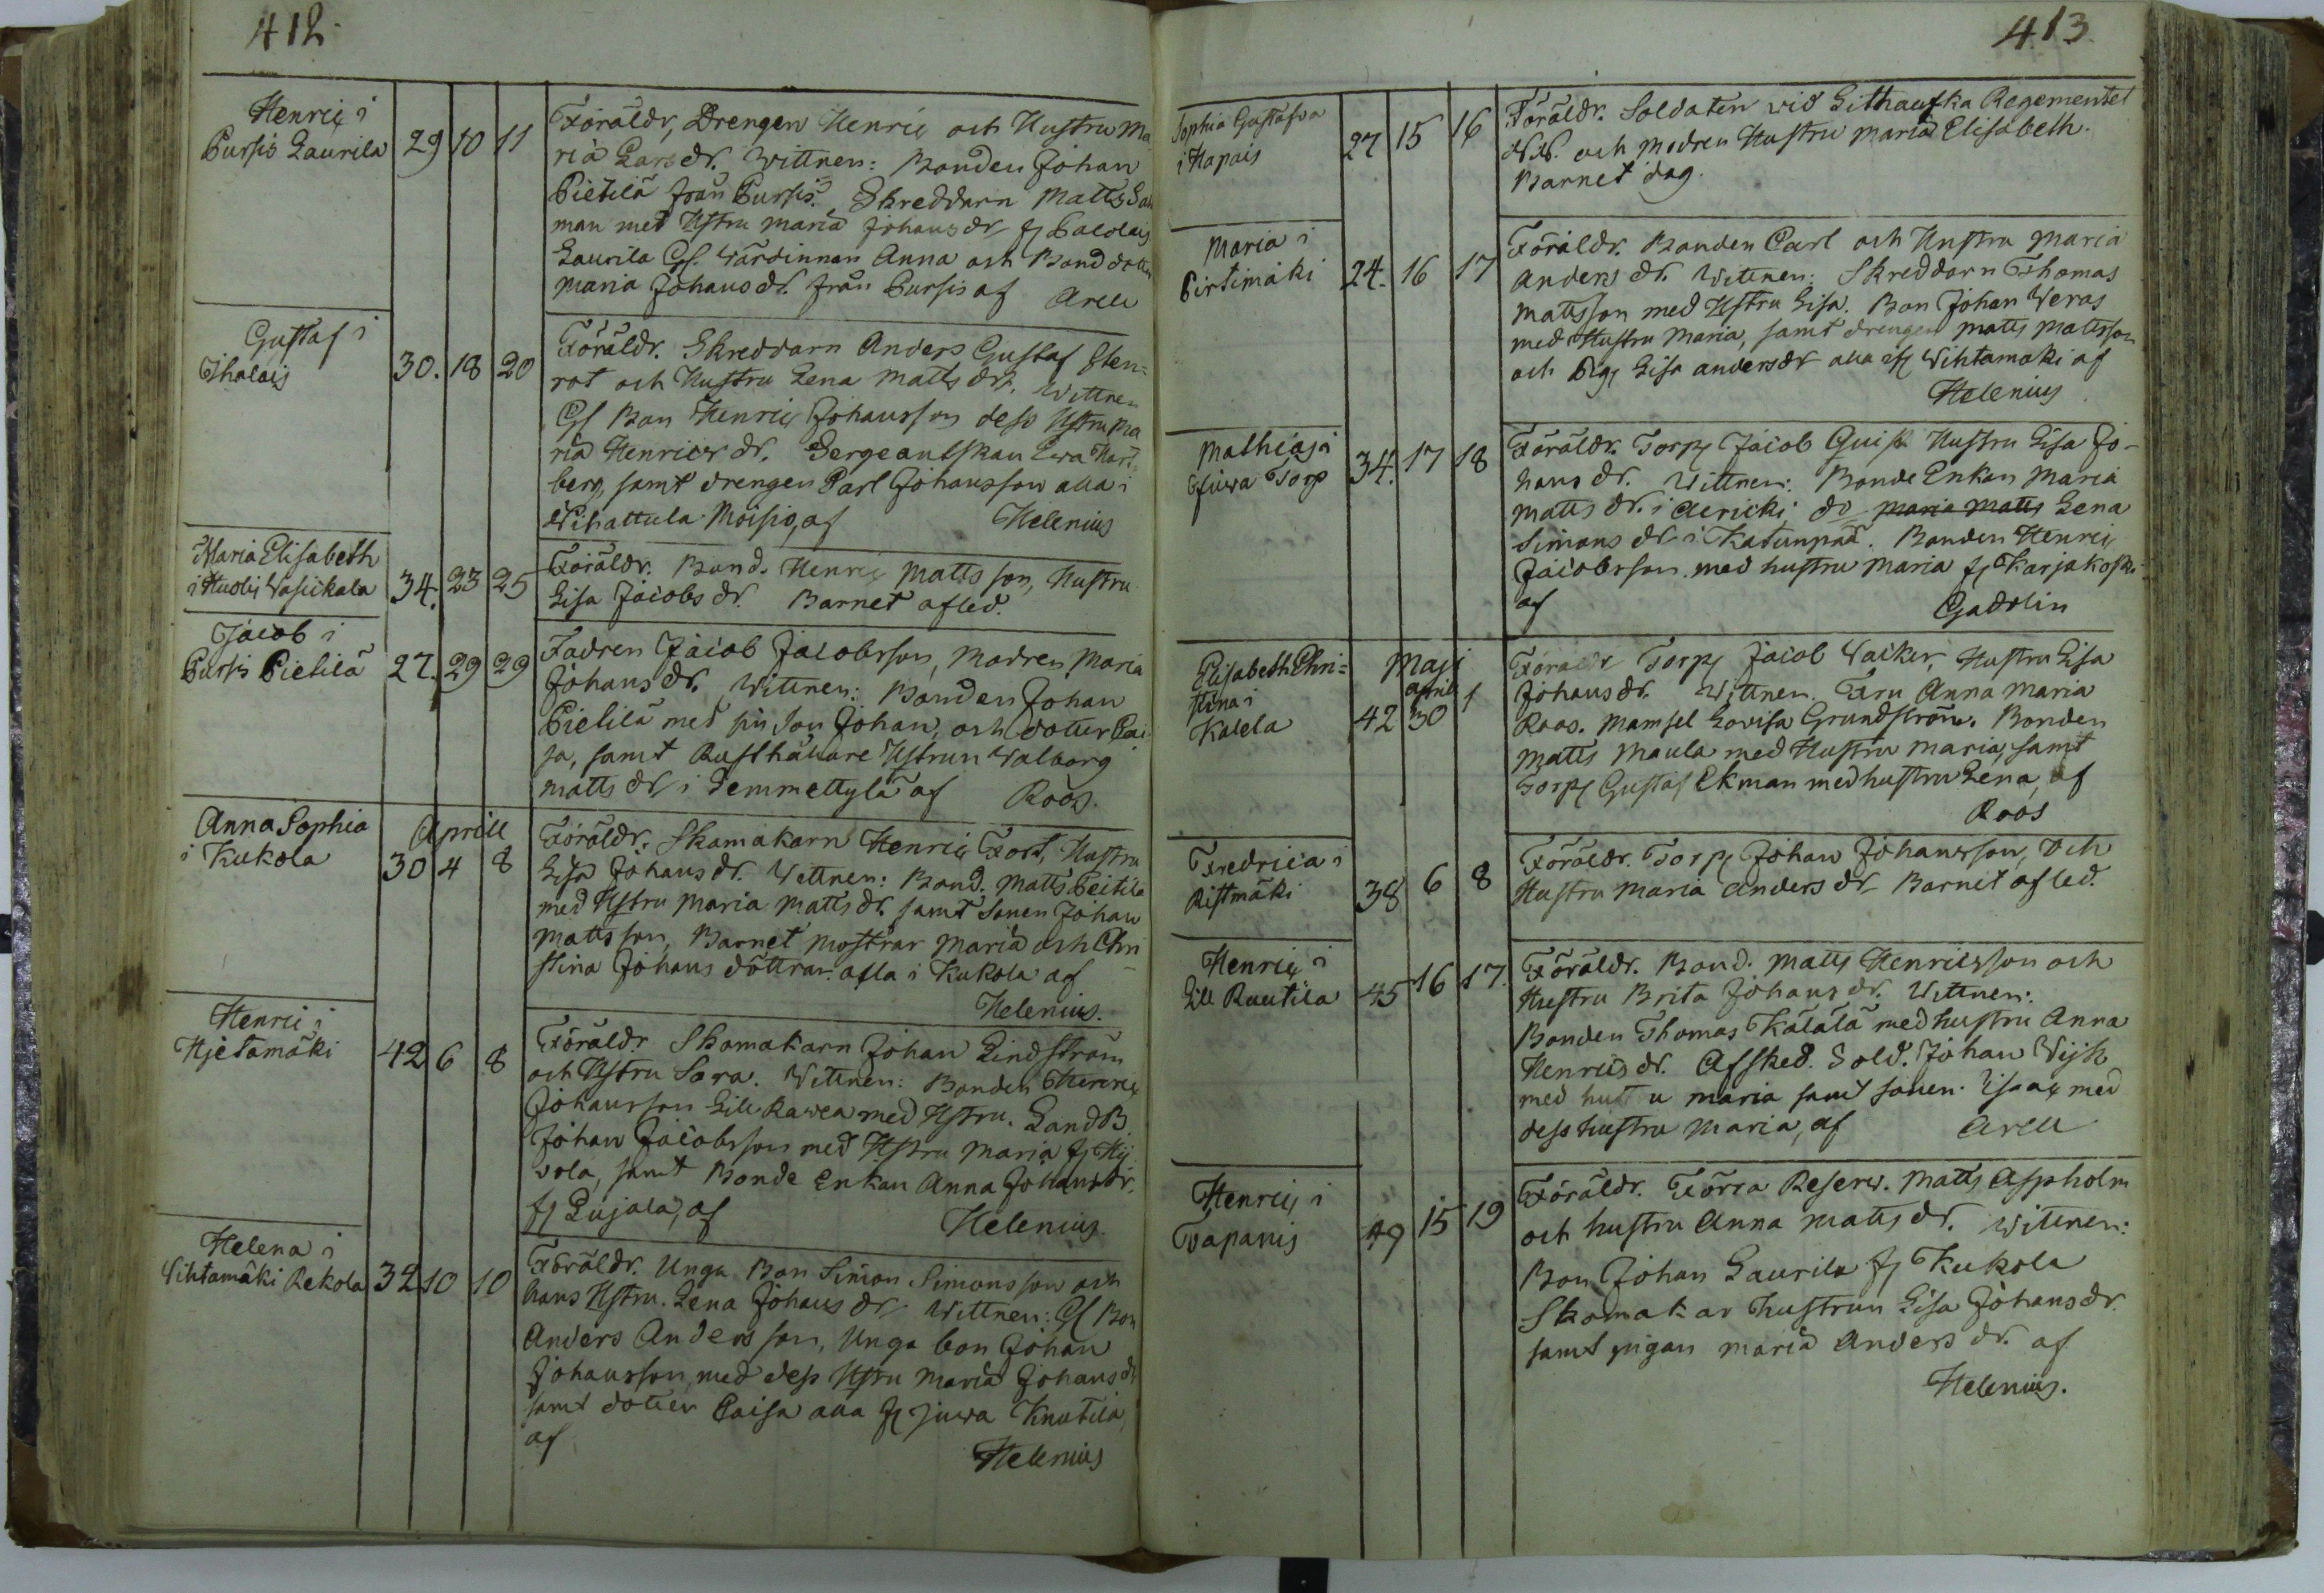 412.
Henric i
Pursis Laurila 29 10 11
Föräldr, Drengen Henric och Hustru Ma
ria Larsdr. Wittnen: Bonden Johan
Pietilä från Pursis. Skreddarn Matts
man med Hstru Maria Johansdr
Laurila Wärdinnan Anna och Bond dotter
Maria Johansdr. från Pursis af Arell
Gustaf i
Ihalais 30. 18 20
Föräldr. Skreddarn Anders Gustaf Sten=
rot och Hustru Lena Mattsdr. Wittnen
Bon Henric Johansson dess Hstru Ma
ria Henricsdr. Sergeantskan Ewa
berg, samt drengen Carl Johansson alla i
Wihattula Moisio, af Helenius
Maria Elisabeth
i Huoli Wasickala 34. 23 25
Föräldr. Bond. Henric Mattsson, Hustru
Lisa Jacobsdr. Barnet afled.
Jacob i
Pursis Pietilä 27. 29 29
Fadren Jacob Jacobsson, Modren Maria
Johansdr. Wittnen: Bonden Johan
Pietilä med sin Son Johan, och dotter Cai
sa, samt Rusthållare Hstrun Walborg
Mattsdr i Temmettylä af Roos.
Anna Sophia
i Kukola
Aprill
30 4 8
Föräldr. Skomakarn Henric Fort, Hustru
Lisa Johansdr. Wittnen: Bond. Matts Peitilä
med Hstru Maria Mattsdr. samt Sonen Johan
Mattsson, Barnet mostrar Maria och Chri
stina Johans döttrar alla i Kukola af
Helenius.
Henric i
Hjetamäki 42 6 8
Föräldr. Skomakarn Johan Lindström
och Hstru Sara. Wittnen: Bonden Henric
Johansson Lill Rawea med Hstru. LandB.
Johan Jacobsson med Hstru Maria
vola, samt Bonde Enkan Anna Johansdr,
fr Lujala, af Helenius.
Helena i
Wihtamäki Rekola 32 10 10
Föräldr. Unga Bon Simon Simonsson och
hans Hstru. Lena Johansdr Wittnen: Bon
Anders Andersson, Unga bon Johan
Johansson, med dess Hstru Maria Johansdr
samt dotter Caisa alla fr Juwa Knutila
af
Helenius
413.
Sophia Gustafva
i Hapais 27 15 16
Föräldr. Soldaten wid Litthauska Regementet
N.N. och Modren Hustru Maria Elisabeth.
Barnet
Maria i
Pirtimäki 24. 16 17
Föräldr. Bonden Carl och Hustru Maria
Andersdr. Wittnen: Skreddarn Thomas
Mattsson med Hstru Lisa. Bon Johan Weras
med Hustru Maria, samt drengen Matts Mattsson
och Pig Lisa Andersdr alla Wihtamäki af
Helenius
Mathias i
Juwa Torp 34. 17 18
Föräldr. Torp Jacob Hustru Lisa Jo-
hansdr. Wittnen: Bonde Enkan Maria
Mattsdr. i Aericki do Maria Matts Lena
Simonsdr i Katunpää. Bonden Henric
Jacobsson. med hustru Maria fr Karjakoski
af Gadolin
Elisabeth Chri=
stina i
Kalela
Maji
April
42 30 1
Föräldr Torp Jacob Wacker, Hustru Lisa
Johansdr. Wittnen. Fru Anna Maria
Roos. Mamsel Lovisa Grundström. Bonden
Matts Maula med Hustru Maria, samt
Torp Gustaf Ekman med hustru Lena, af
Roos
Fredrica i
Ristmäki 38 6 8
Föräldr. Torp Johan Johansson, och
Hustru Maria Andersdr Barnet afled.
Henric i
Lill Rautila 45 16 17.
Föräldr. Bond. Matts Henricsson och
Hustru Brita Johansdr. Wittnen:
Bonden Thomas Kälälä med hustru Anna
Henricsdr. Afsked. Sold. Johan Wijk
med hustru Maria samt sonen Isaac med
dess hustru Maria, af Arell
Henric i
Tapanis 49 15 19
Föräldr. Förra Reserv. Matts Aspholm
och hustru Anna Mattsdr. Wittnen:
Bon Johan Laurila fr Kukola
Skomakar hustrun Lisa Johansdr.
samt pigan Maria Andersdr. af
Helenius.